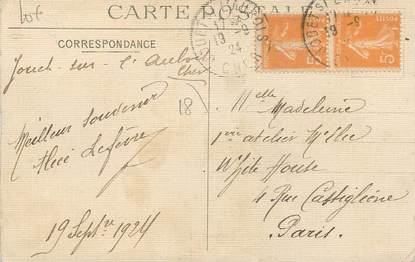 10f
CARTE POSTALE
CORRESPONDANCE
Jouet-sur-l'Aubois
Cher
18
Meilleur souvenir
Alice Lefèvre
19 Septre 1924
Melle Madeleine
1ère atelier Melle
White House
4 Rue Castiglione
Paris.